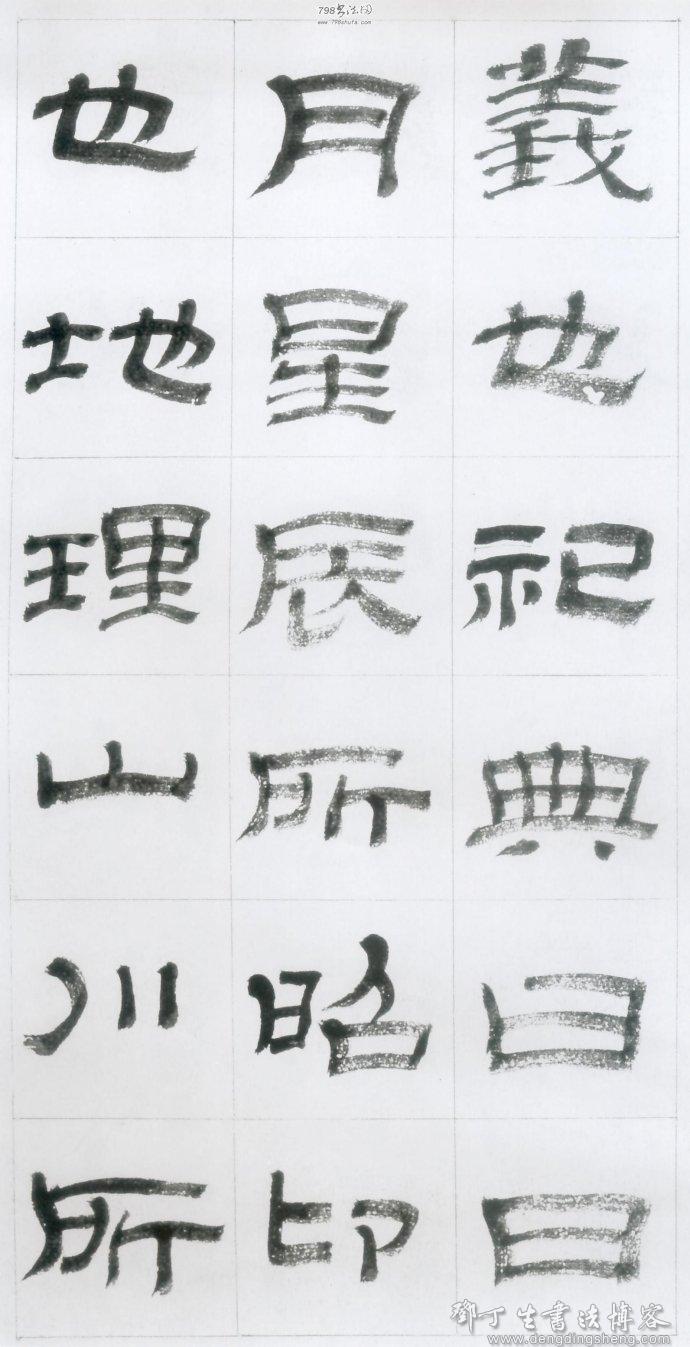 798书法网
www.798shufa.com
義也祀典曰日
月星辰所昭卬
也地理山川所
鄧丁生書法博客
www.dengdingsheng.com